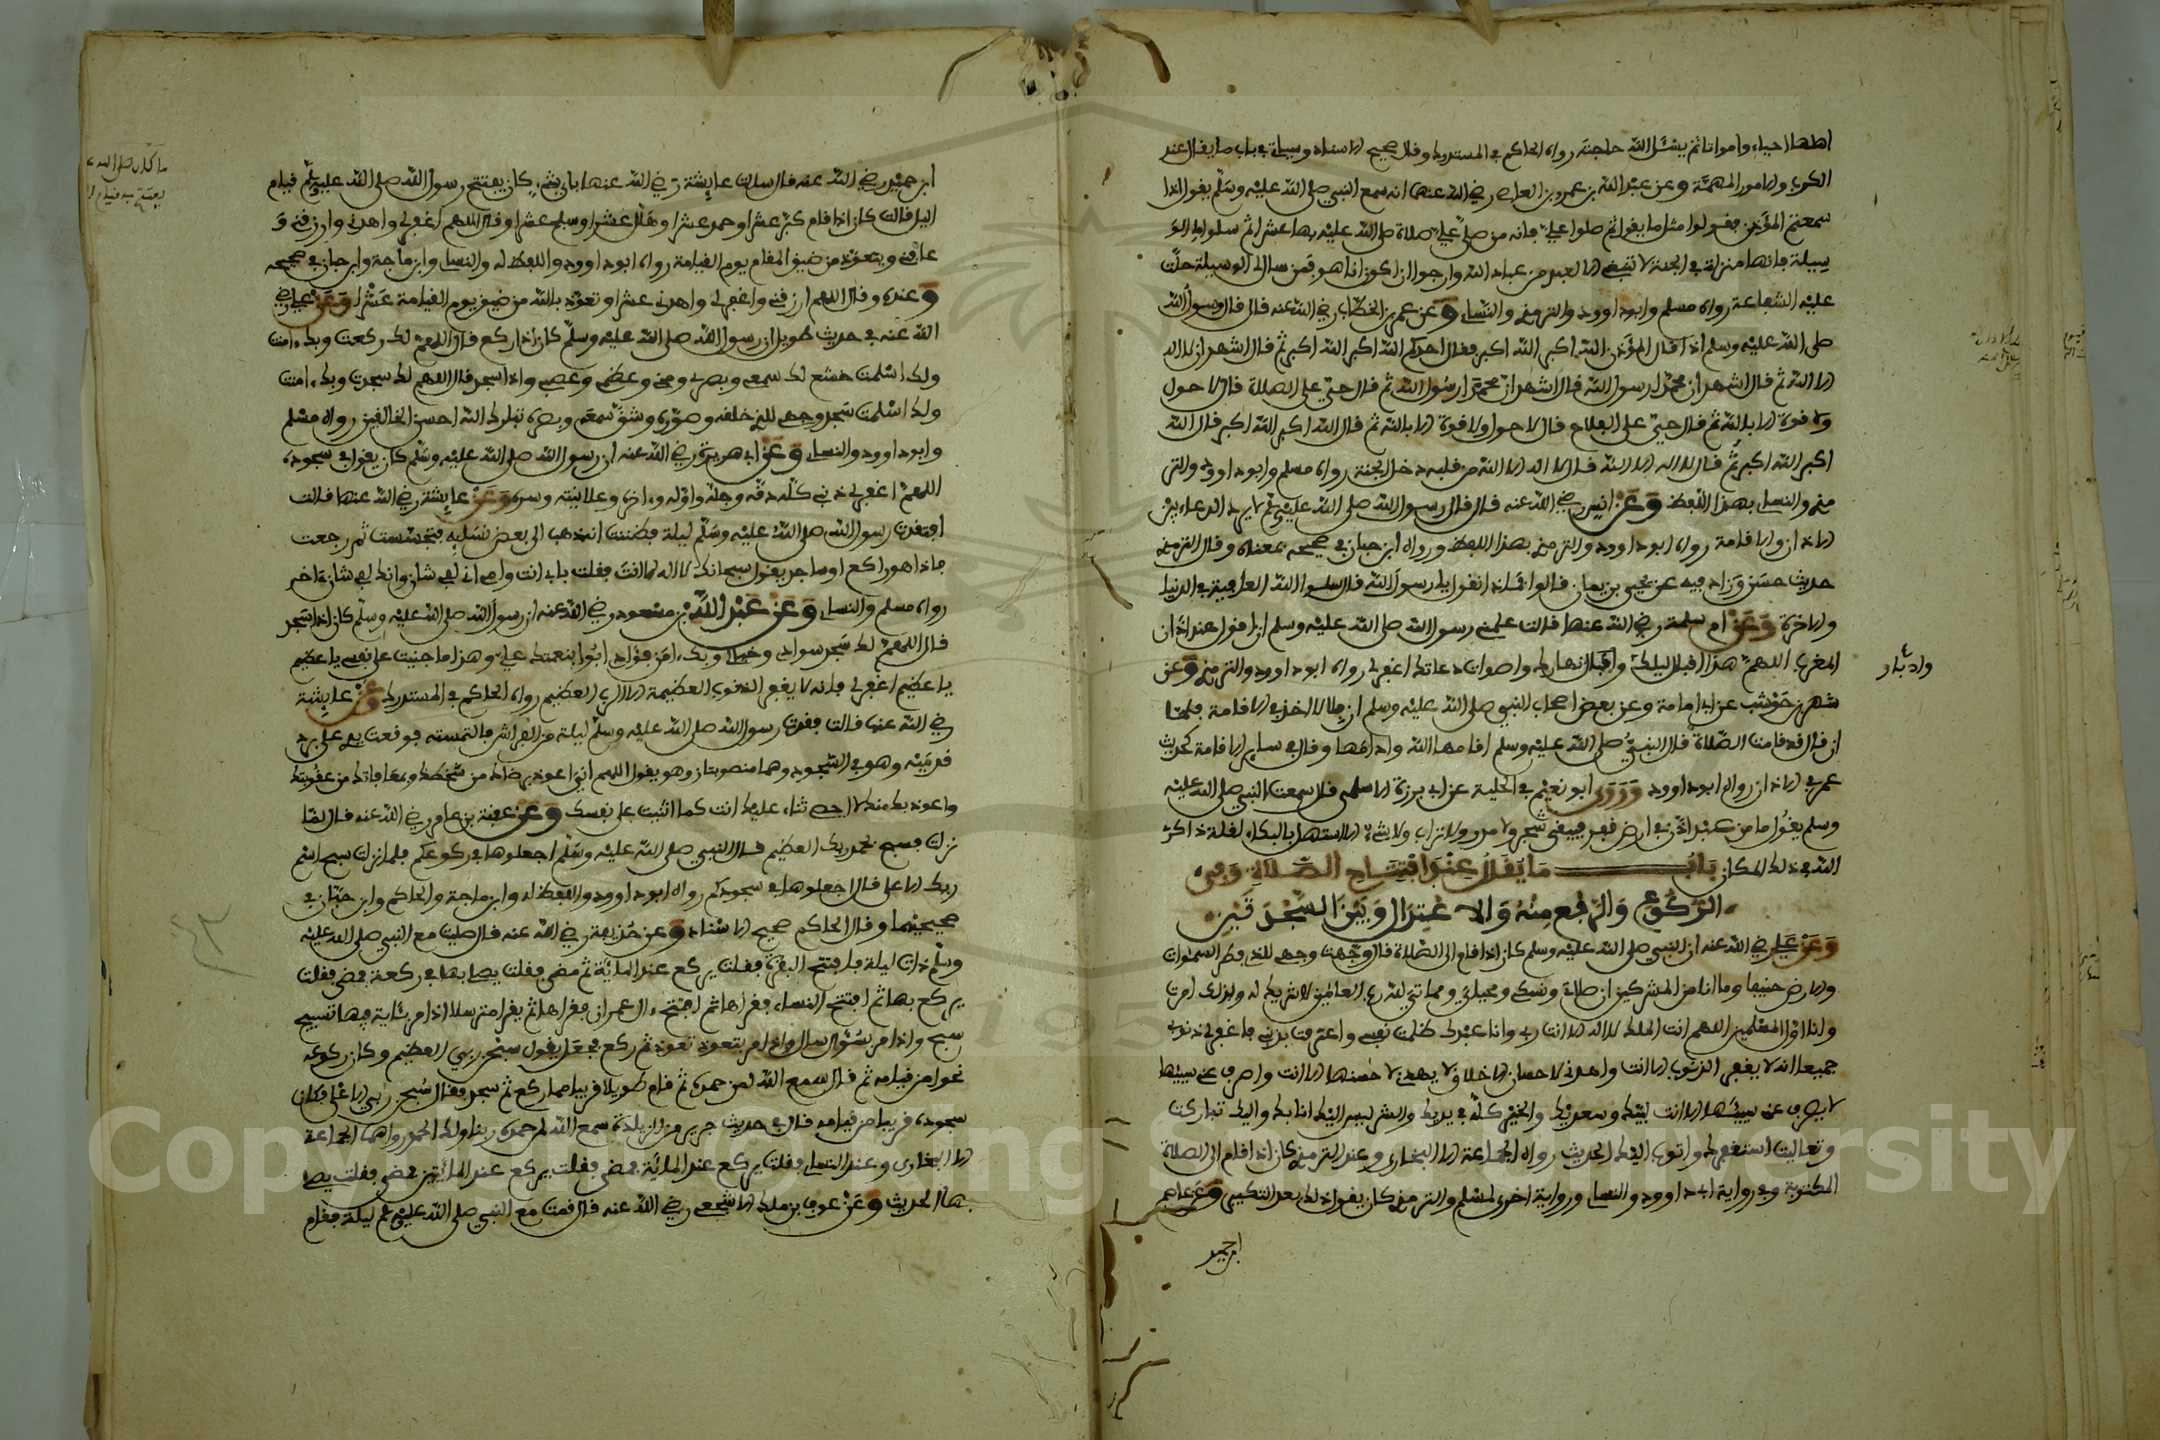 اطهاا حياء وامواتا ثم يسئل الله حاجته رواه الحاكم في المستدرك وقال صحيح الاسناد وسياتي في باب ما يقال عند
الكرب والامور المهمة وعن عبد الله بن عمرو بن العاص رضي الله عنهما انه سمع النبي صلى الله عليه وسلم يقول اذا
سمعتم المؤذن فقولوا مثل ما يقول ثم صلوا علي فانه من صلى علي صلاة صلى الله عليه بها عشرا ثم سلوا الله لي الو
سيلة فانها منزلة في الجنة لا تنبغي الا لعبد من عباد الله وارجو ان اكون انا هو فمن سال لي الوسيلة حلت
عليه الشفاعة رواه مسلم وابو داوود والترمذي والنسائي وعن عمر بن الخطاب رضي الله عنه قال قال رسول الله
صلى الله عليه وسلم اذا قال المؤذن الله اكبر الله اكبر فقال احدكم الله اكبر الله اكبر ثم قال اشهد ان لا اله
الا الله ثم قال اشهد ان محمدا رسول الله قال اشهد ان محمدا رسول الله ثم قال حي على الصلاة قال لا حول
ولا قوة الا بالله ثم قال حي على الفلاح قال لا حول ولا قوة الا بالله ثم قال الله اكبر الله اكبر قال الله
اكبر الله اكبر ثم قال لا اله الا الله قال لا اله الا الله من قلبه دخل الجنة رواه مسلم وابو داوود والتر
مذي والنسائي بهذا اللفظ وعن انس رضي الله عنه قال قال رسول الله صلى الله عليه وسلم لا يرد الدعاء بين
الاذان والاقامة رواه ابو داوود والترمذي بهذا اللفظ ورواه ابن حبان في صحيحه بمعناه وقال الترمذي
حديث حسن وزاد فيه عن يحيى بن يمان قالوا فماذا نقول يا رسول الله قال سلوا الله العافية في الدنيا
والاخرة وعن ام سلمة رضي الله عنها قالت علمني رسول الله صلى الله عليه وسلم ان اقول عند اذان
المغرب اللهم هذا اقبال ليلك واقبال نهارك واصوات دعاتك اغفر لي رواه ابو داوود والترمذي وعن
وادبار
شهر بن حوشب عن ابي امامة وعن بعض اصحاب النبي صلى الله عليه وسلم ان بلالا اخذ في الاقامة فلما
ان قال قد قامت الصلاة قال النبي صلى الله عليه وسلم اقامها الله وادامها وقال في ساير الاقامة كحديث
عمر في الاذان رواه ابو داوود وروى ابو نعيم في الحلية عن ابي برزة الاسلمي قال سمعت النبي صلى الله عليه
وسلم يقول ما من عبد اذن في ارض قفر فيبقى شجر ولا مدر ولا تراب ولا شيء الا استهل بالبكاء لقلة ذاكر
الله في ذلك المكان باب ما يقال عند افتتاح الصلاة وفي
الركوع والرفع منه والاعتدال وبين السجدتين
وعن علي رضي الله عنه ان النبي صلى الله عليه وسلم كان اذا قام الى الصلاة قال وجهت وجهي للذي فطر السموات
والارض حنيفا وما انا من المشركين ان صلاتي ونسكي ومحياي ومماتي لله رب العالمين لا شريك له وبذلك امرت
وانا اول المسلمين اللهم انت الملك لا اله الا انت ربي وانا عبدك ظلمت نفسي واعترفت بذنبي فاغفر لي ذنوبي
جميعا انه لا يغفر الذنوب الا انت واهدني لاحسن الاخلاق لا يهدي لاحسنها الا انت واصرف عني سيئها
لا يصرف عني سيئها الا انت لبيك وسعديك والخير كله في يديك والشر ليس اليك انا بك واليك تباركت
وتعاليت استغفرك واتوب اليك الحديث رواه الجماعة الا البخاري وعند الترمذي كان اذا قام الى الصلاة
المكتوبة وفي رواية ابي داوود والنسائي ورواية اخرى لمسلم والترمذي كان يقول ذلك بعد التكبير وعن عاصم
ابن حميد
ابن حميد رضي الله عنه قال سالت عايشة رضي الله عنها باي شيء كان يفتتح رسول الله صلى الله عليه وسلم قيام
اليل قالت كان اذا قام كبر عشرا وحمد عشرا وهلل عشرا وسبح عشرا وقال اللهم اغفر لي واهدني وارزقني و
عافني ويتعوذ من ضيق المقام يوم القيامة رواه ابو داوود واللفظ له والنسائي وابن ماجة وابن حبان في صحيحه
وعنده وقال اللهم ارزقني واغفر لي واهدني عشرا وتعوذ بالله من ضيق يوم القيامة عشرا وعن علي رضي
الله عنه في حديث طويل ان رسول الله صلى الله عليه وسلم كان اذا ركع قال اللهم لك ركعت وبك ءامنت
ولك اسلمت خشع لك سمعي وبصري ومخي وعظمي وعصبي واذا سجد قال اللهم لك سجدت وبك ءامنت
ولك اسلمت سجد وجهي للذي خلقه وصوره وشق سمعه وبصره تبارك الله احسن الخالقين رواه مسلم
وابو داوود والنسائي وعن ابي هريرة رضي الله عنه ان رسول الله صلى الله عليه وسلم كان يقول في سجوده
اللهم اغفر لي ذنبي كله دقه وجله واوله وءاخره وعلانيته وسره وعن عايشة رضي الله عنها قالت
افتقدت رسول الله صلى الله عليه وسلم ليلة فظننت انه ذهب الى بعض نسائه فتجسست ثم رجعت
فاذا هو راكع او ساجد يقول سبحانك لا اله الا انت فقلت بابي انت وامي اني لفي شان وانك لفي شان ءاخر
رواه مسلم والنسائي وعن عبد الله بن مسعود رضي الله عنه ان رسول الله صلى الله عليه وسلم كان اذا سجد
قال اللهم لك سجد سوادي وخيالي وبك ءامن فؤادي ابوء بنعمتك علي وهذا ما جنيت على نفسي يا عظيم
يا عظيم اغفر لي فانه لا يغفر الذنوب العظيمة الا الرب العظيم رواه الحاكم في المستدرك وعن عايشة
رضي الله عنها قالت فقدت رسول الله صلى الله عليه وسلم ليلة من الفراش فالتمسته فوقعت يدي على بطن
قدميه وهو في السجود وهما منصوبتان وهو يقول اللهم اني اعوذ برضاك من سخطك وبمعافاتك من عقوبتك
واعوذ بك منك لا احصي ثناء عليك انت كما اثنيت على نفسك وعن عقبة بن عامر رضي الله عنه قال لما
نزلت فسبح بحمد ربك العظيم قال النبي صلى الله عليه وسلم اجعلوها في ركوعكم فلما نزلت سبح اسم
ربك الاعلى قال اجعلوها في سجودكم رواه ابو داوود واللفظ له وابن ماجة والحاكم وابن حبان في
صحيحيهما وقال الحاكم صحيح الاسناد وعن حذيفة رضي الله عنه قال صليت مع النبي صلى الله عليه
وسلم ذات ليلة فافتتح البقرة فقلت يركع عند المائة ثم مضى فقلت يصلي بها في ركعة فمضى فقلت
يركع بها ثم افتتح النساء فقراها ثم افتتح ءال عمران فقراها ثم يقرا مترسلا اذا مر بئاية فيها تسبيح
سبح واذا مر بسؤال سال واذا مر بتعوذ تعوذ ثم ركع فجعل يقول سبحن ربي العظيم وكان ركوعه
نحوا من قيامه ثم قال سمع الله لمن حمده ثم قام طويلا قريبا مما ركع ثم سجد فقال سبحن ربي الاعلى فكان
سجوده قريبا من قيامه قال في حديث جرير من الزيادة سمع الله لمن حمده ربنا ولك الحمد رواهما الجماعة
الا البخاري وعند النسائي فقلت يركع عند المائة فمضى فقلت يركع عند المائتين فمضى فقلت يصلي
بها الحديث وعن عوف بن ملك الاشجعي رضي الله عنه قال قمت مع النبي صلى الله عليه وسلم ليلة فقام
Copyright © King Saud University